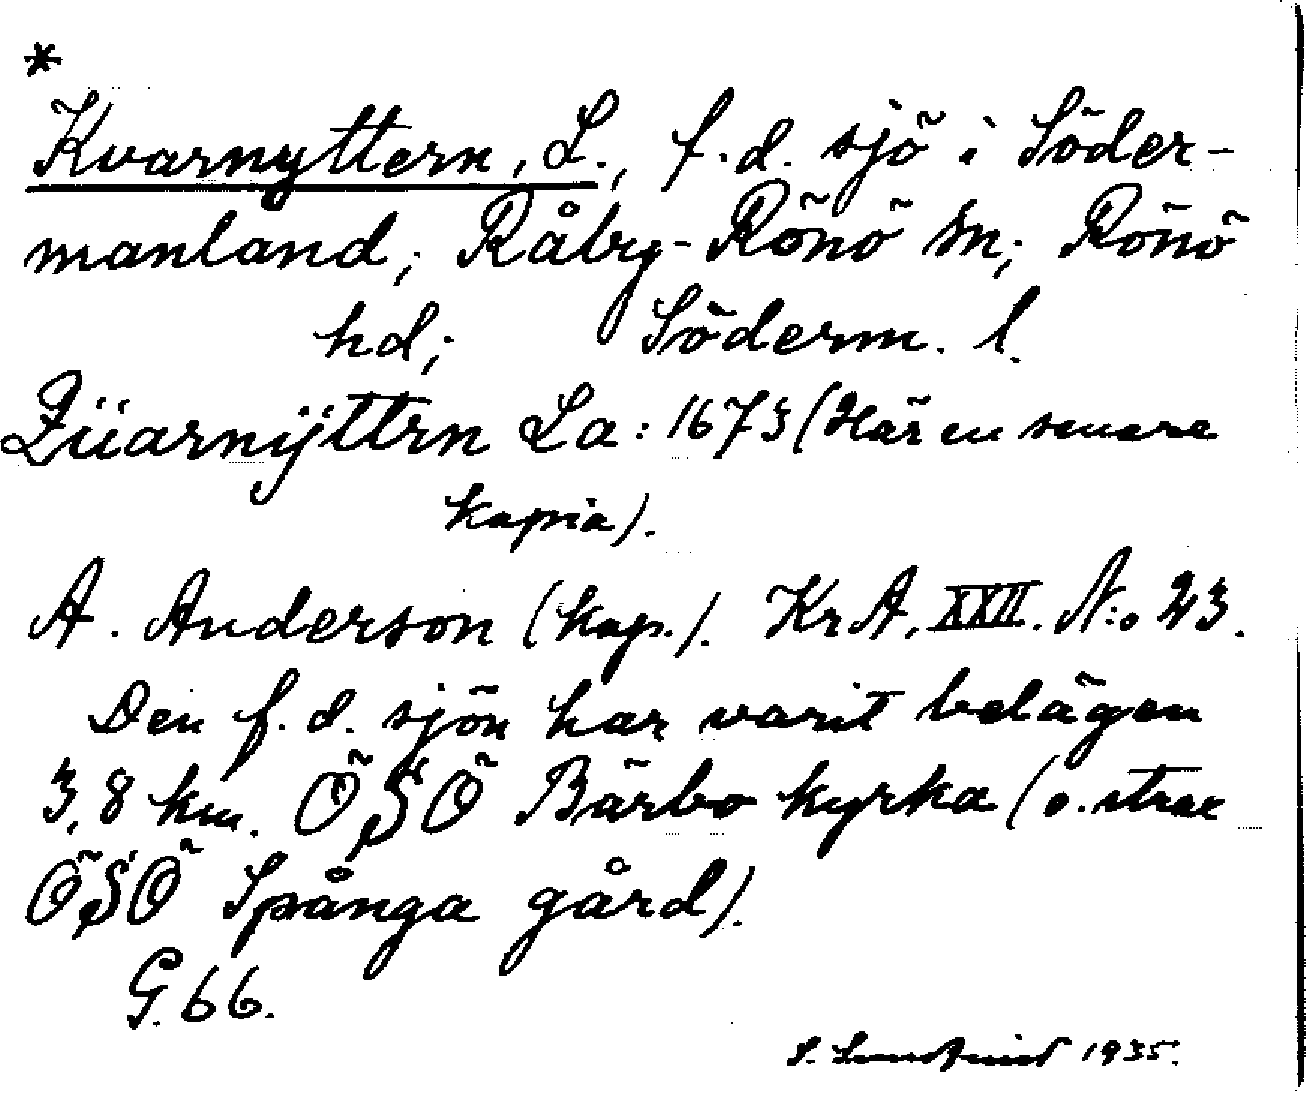 *
Kvarnyttern, L., f.d. sjö i Söder-
manland; Råby-Rönö sn; Rönö
hd; Söderm. l.
Qüarnÿttrn La: 1673 (Här en senare
kopia).
A. Anderson (kop.). Kr A, XXII. N:o 23.
Den f.d. sjön har varit belägen
3,8 km. ÖSÖ Bärbo kyrka (o. strax
ÖSÖ Spånga gård).
G. 66.
S. Lundqvist 1935.